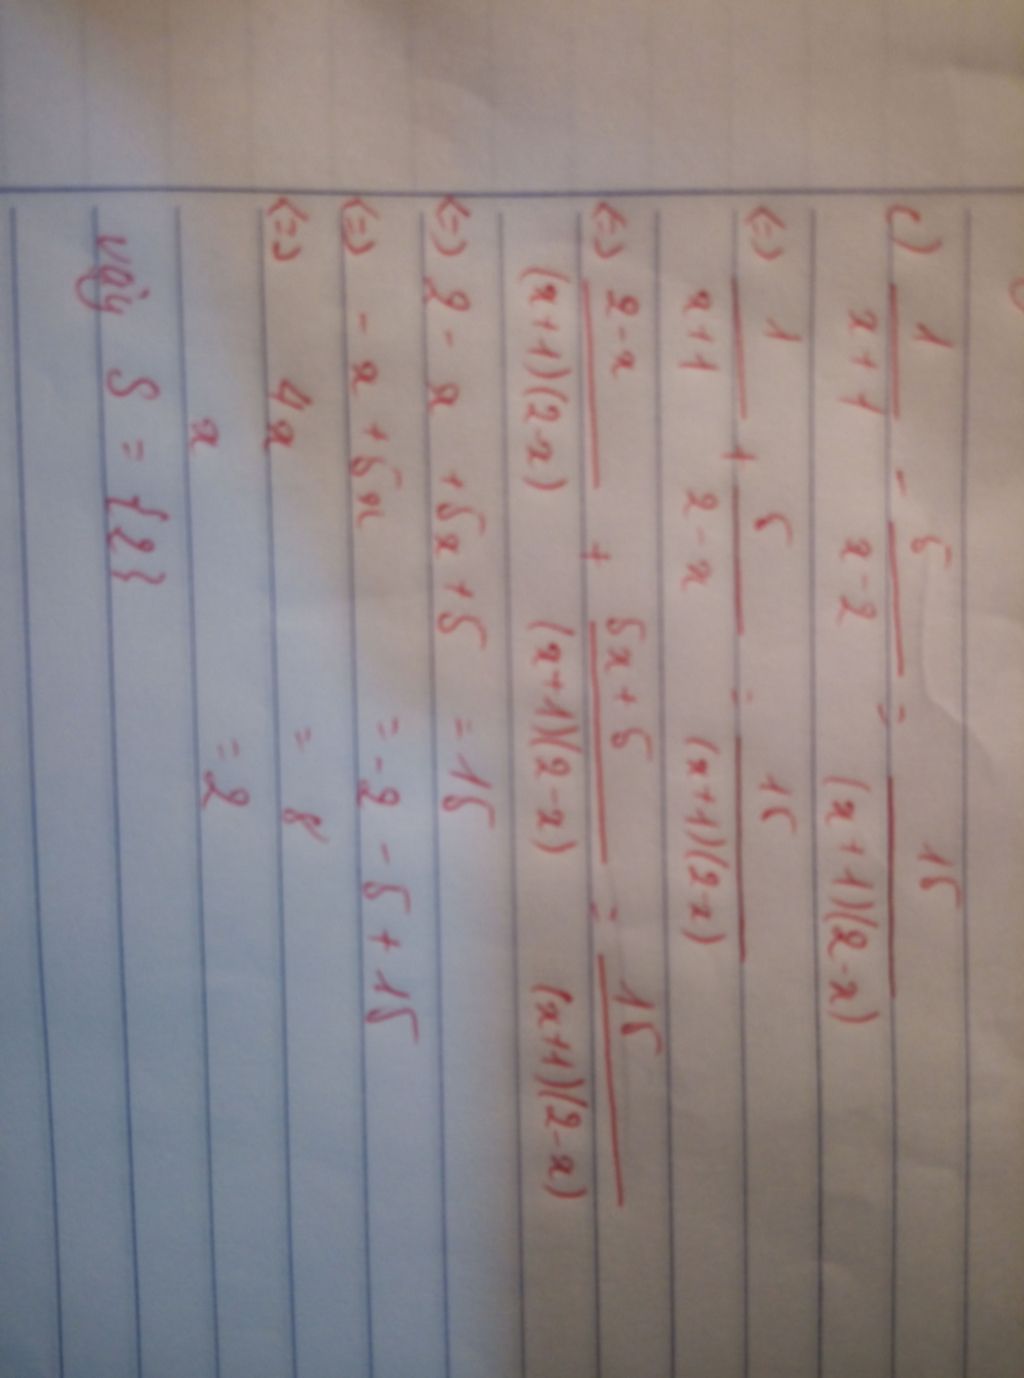 c) 1/(x+1) - 5/(x-2) = 15/((x+1)(2-x))
(=) 1/(x+1) + 5/(2-x) = 15/((x+1)(2-x))
(=) (2-x)/((x+1)(2-x)) + (5x+5)/((x+1)(2-x)) = 15/((x+1)(2-x))
(=) 2 - x + 5x + 5 = 15
(=) - x + 5x = -2 - 5 + 15
(=) 4x = 8
x = 2
vậy S = {2}